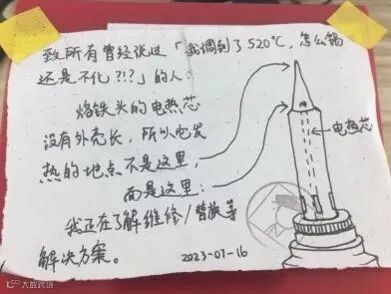 致所有曾经说过「我调到了520℃，怎么锡
还是不化?!?」的人：
烙铁头的电热芯
没有外壳长，所以它发
热的地点不是这里，
而是这里：
电热芯
我正在了解维修/替换等
解决方案。
2023-07-16
大数跨境